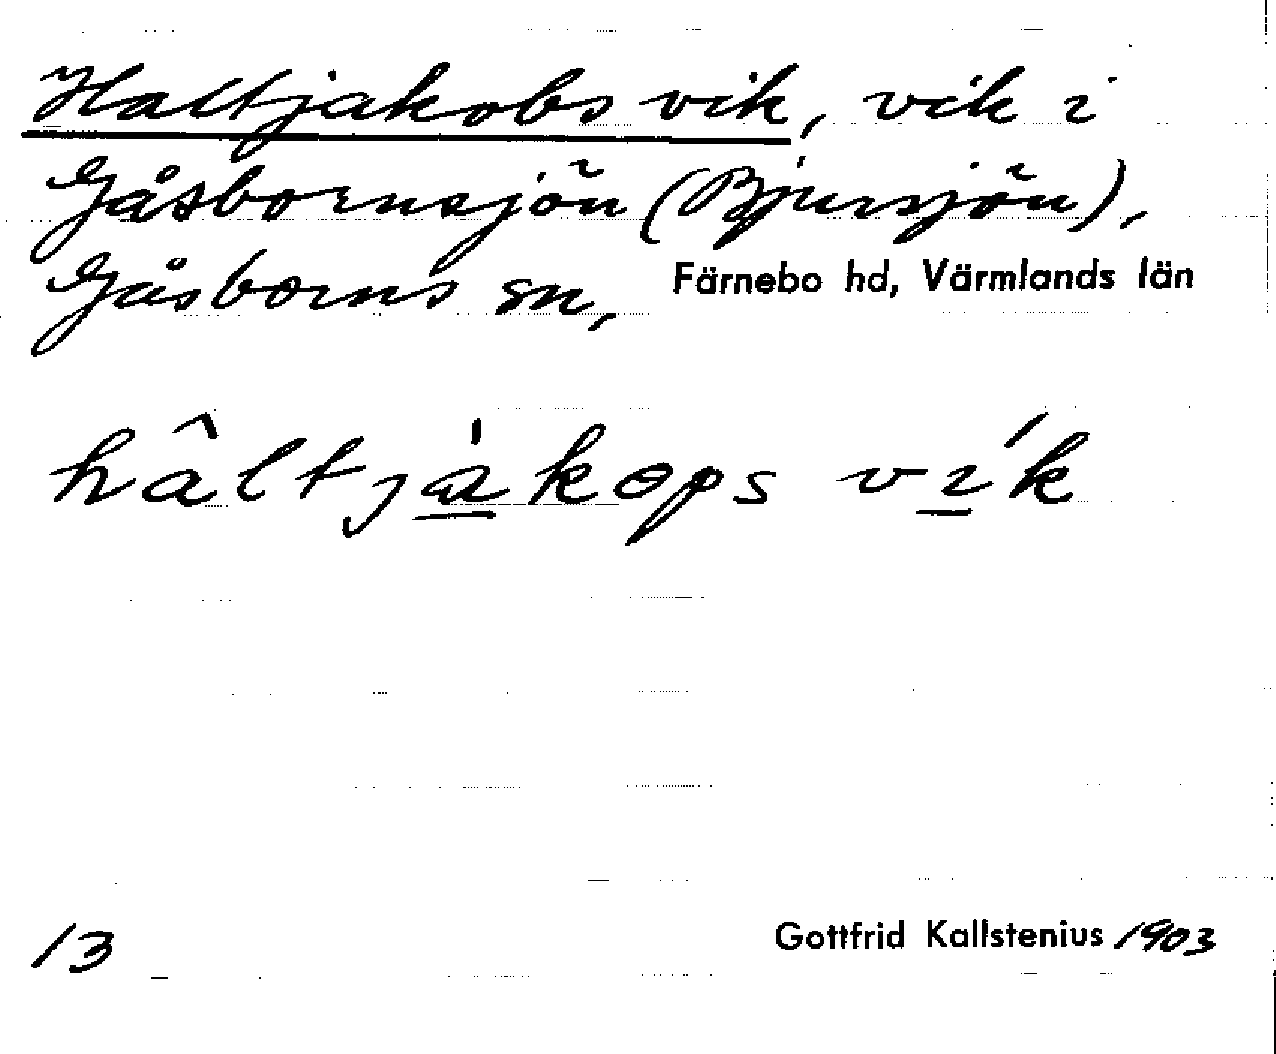 Haltjakobs vik, vik i
Gåsbornsjön (Bjursjön),
Gåsborns sn, Färnebo hd, Värmlands län
hâltjákops vík
13 Gottfrid Kallstenius 1903